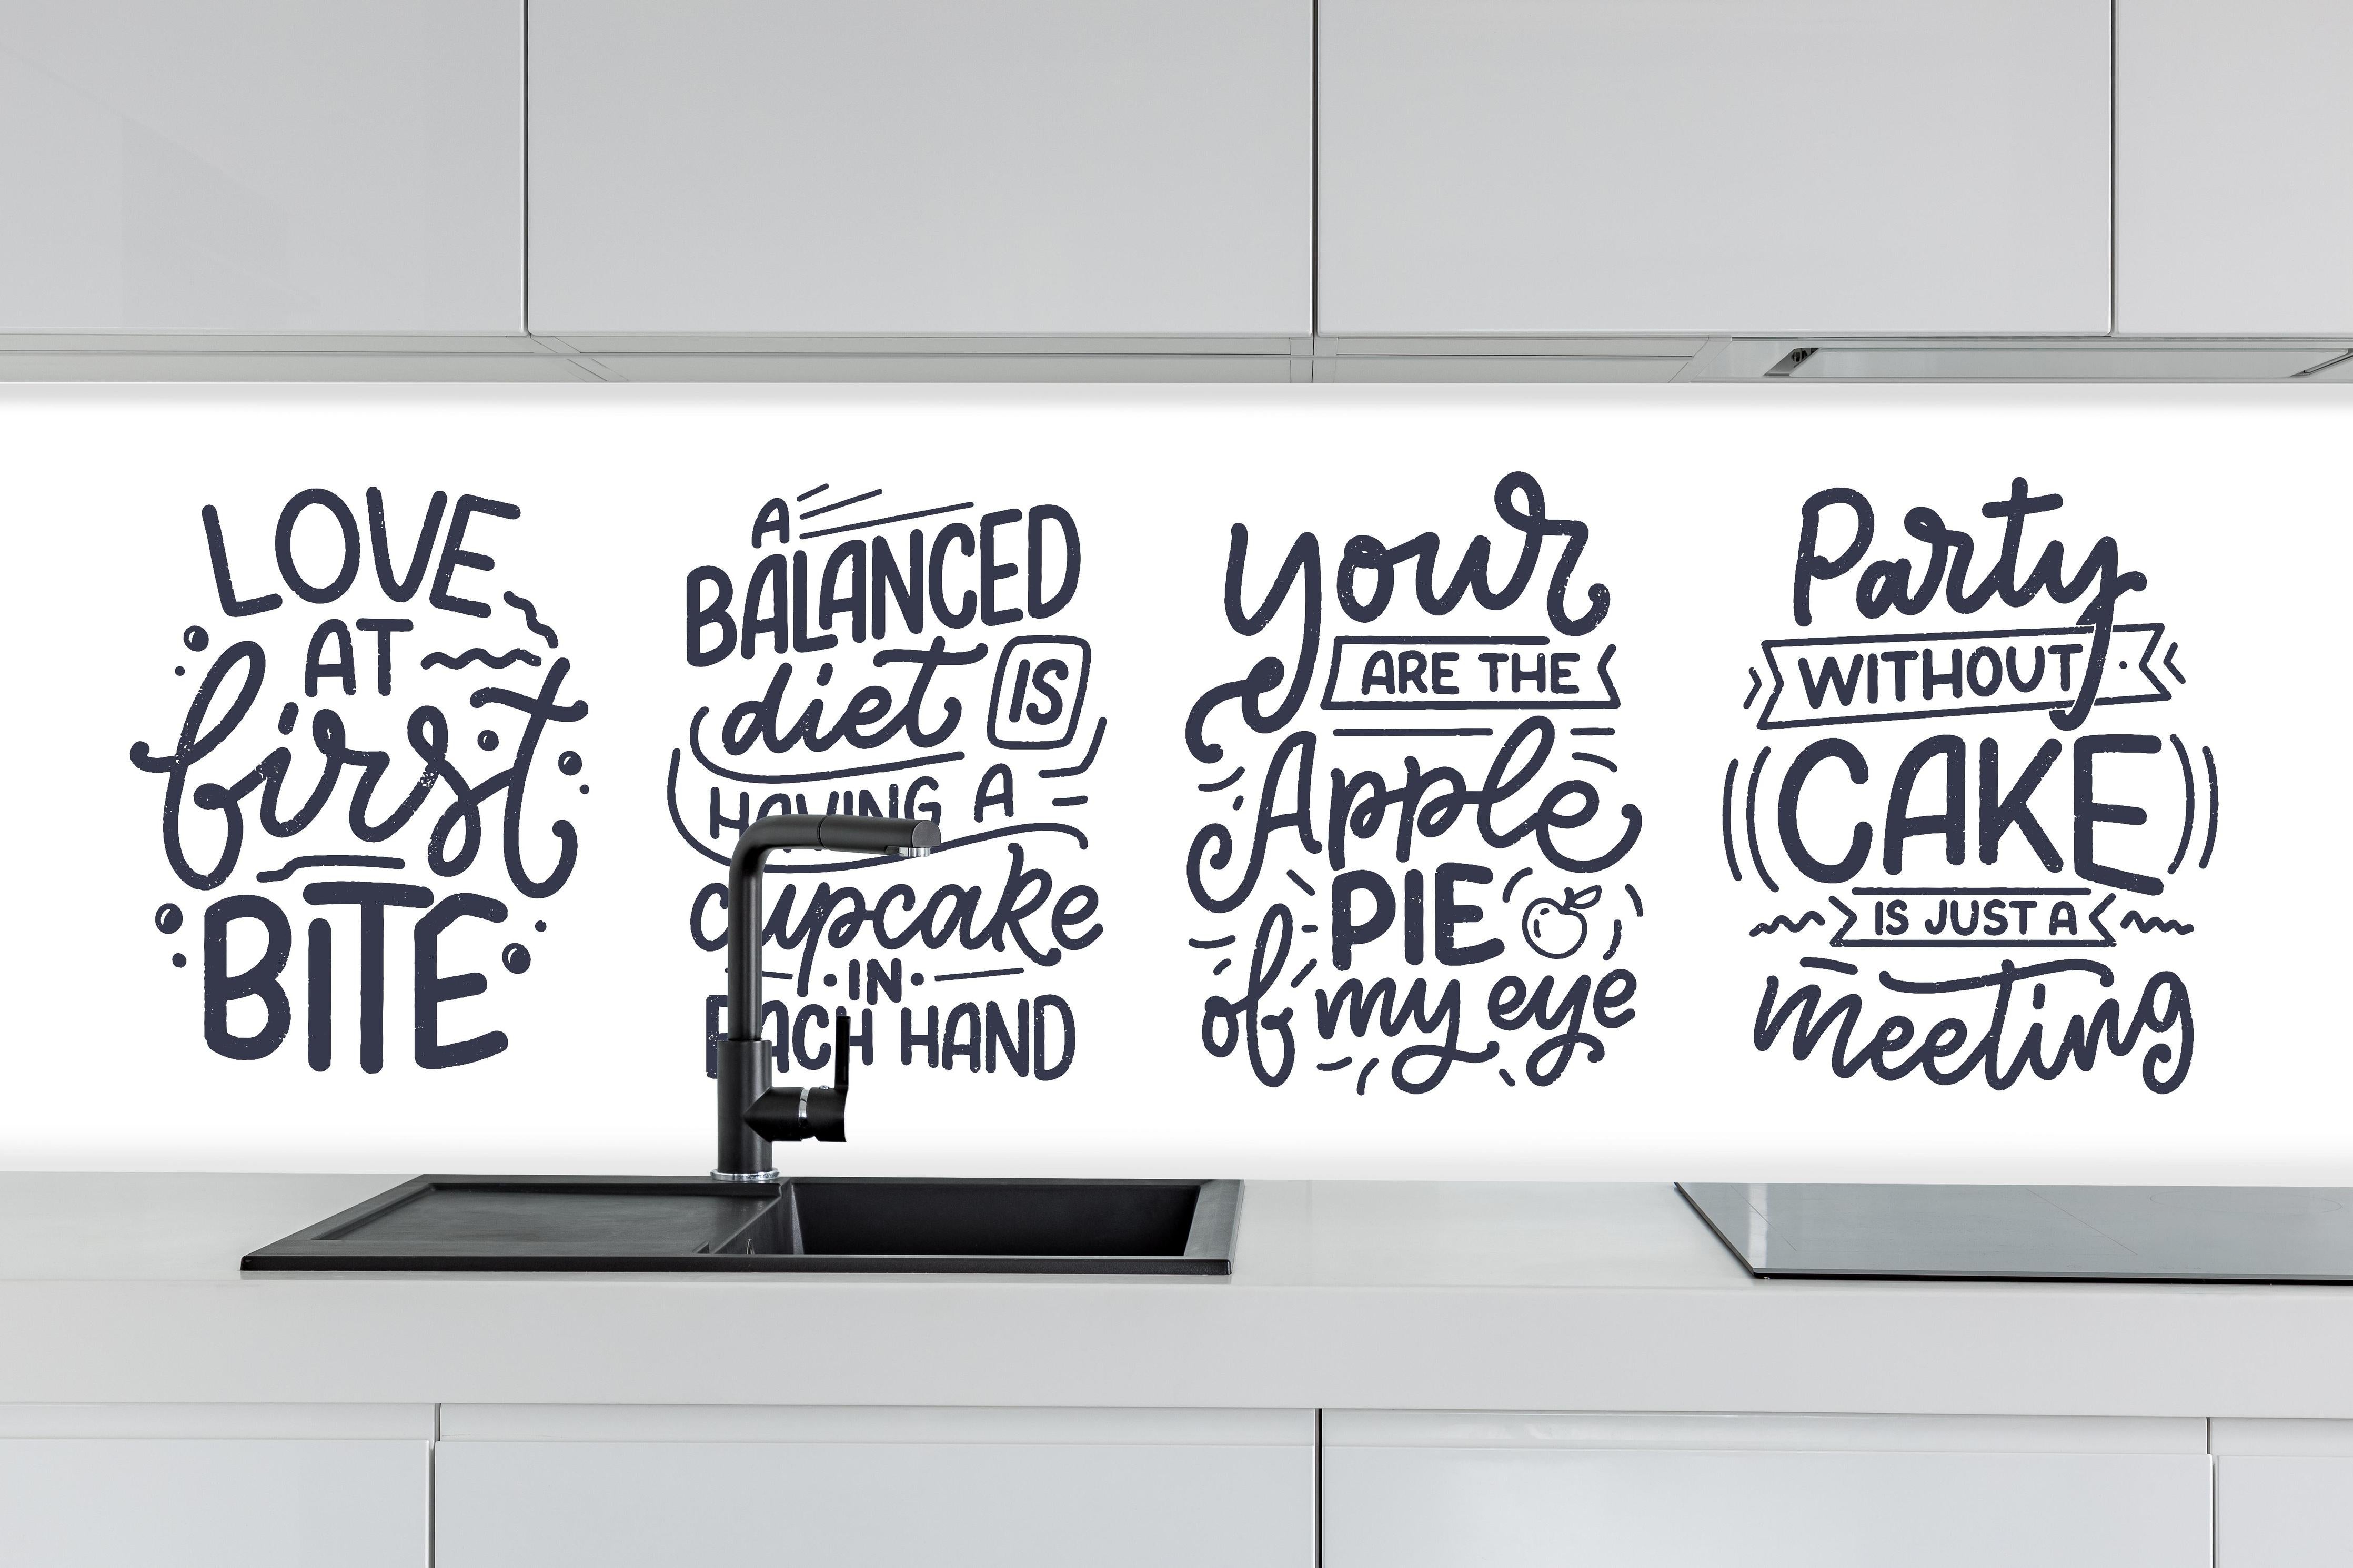 LOVE
AT
first
BITE
A
BALANCED
diet IS
HAVING A
cupcake
IN
EACH HAND
Your
ARE THE
Apple
PIE
of my eye
Party
WITHOUT
CAKE
IS JUST A
meeting